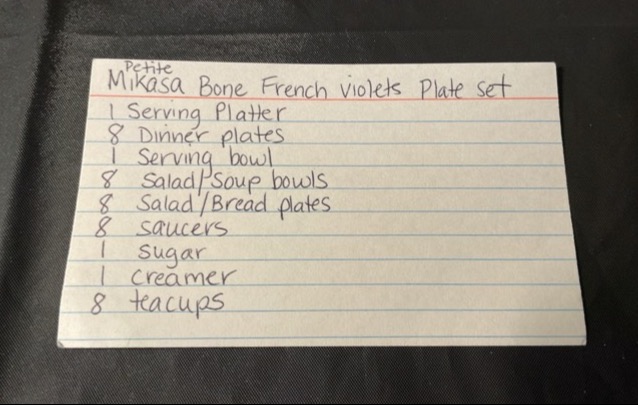 Petite
Mikasa Bone French violets Plate set
1 Serving Platter
8 Dinner plates
1 Serving bowl
8 Salad/Soup bowls
8 Salad/Bread plates
8 saucers
1 sugar
1 creamer
8 teacups